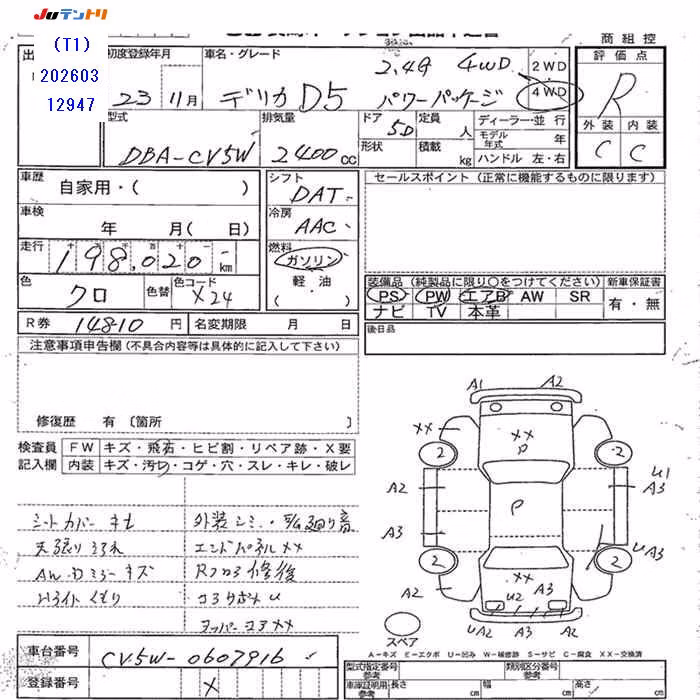 Juテントリ
(T1)
202603
12947
商組控
初度登録年月
車名・グレード
2.4G 4WD
2WD
4WD
評価点
R
23 11月
デリカ D5 パワーパッケージ
外装 内装
C C
型式
排気量
ドア
定員
人
ディーラー・並行
DBA-CV5W
2400cc
5D
形状
積載
kg
モデル年式
年
ハンドル 左・右
車歴
自家用・( )
シフト
DAT
セールスポイント (正常に機能するものに限ります)
車検
年 月( 日)
冷房
AAC
走行
198,020 km
燃料
ガソリン
軽油
( )
色
クロ
色替
色コード
X24
装備品 (純製品に限り○をつけてください)
新車保証書
PS PW エアB AW SR
ナビ TV 本革
有・無
R券
14810円
名変期限 月 日
後日品
注意事項申告欄 (不具合内容等は具体的に記入して下さい)
修復歴 有 〔箇所 〕
検査員
記入欄
FW キズ・飛石・ヒビ割・リペア跡・X要
内装 キズ・汚れ・コゲ・穴・スレ・キレ・破レ
シートカバー キセ
外装シミ
エンドパネル XX
AW・Dミラー キズ
修復
Hライト くもり
コアサポメ U
XX
A1 A2
XX
XX
P
2 2
U1
A2
A3
P
A3
U A3
2 2
XX
A2
U2 A3
UA2 A3 A2
スペア
A-キズ E-エクボ U-凹み W-補修跡 S-サビ C-腐食 XX-交換済
車台番号
CV5W-0607916
登録番号
X
型式指定番号
参考
類別区分番号
参考
車庫証明用
参考
長さ cm
幅 cm
高さ cm